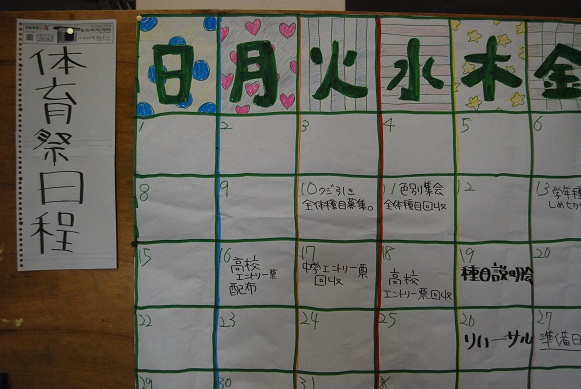 体育祭日程
日 月 火 水 木 金
1 2 3 4 5 6
8 9 10 クジ引き 11 色別集会 12 13 学年種
全体種目募集。 全体種目回収 しめせつ
15 16 17 18 19 20
高校 中学エントリー票 高校 種目説明会
エントリー票 回収 エントリー票回収
配布
22 23 24 25 26 27
リハーサル 準備日
29 30 31